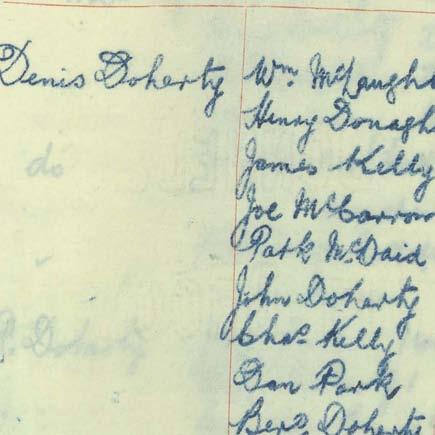 Denis Doherty Wm. McLaugh
Henry Donagh
do James Kelly
Joe McCarron
Patk McDaid
John Doherty
P. Doherty Chas Kelly
Dan Park
Berd Doherty